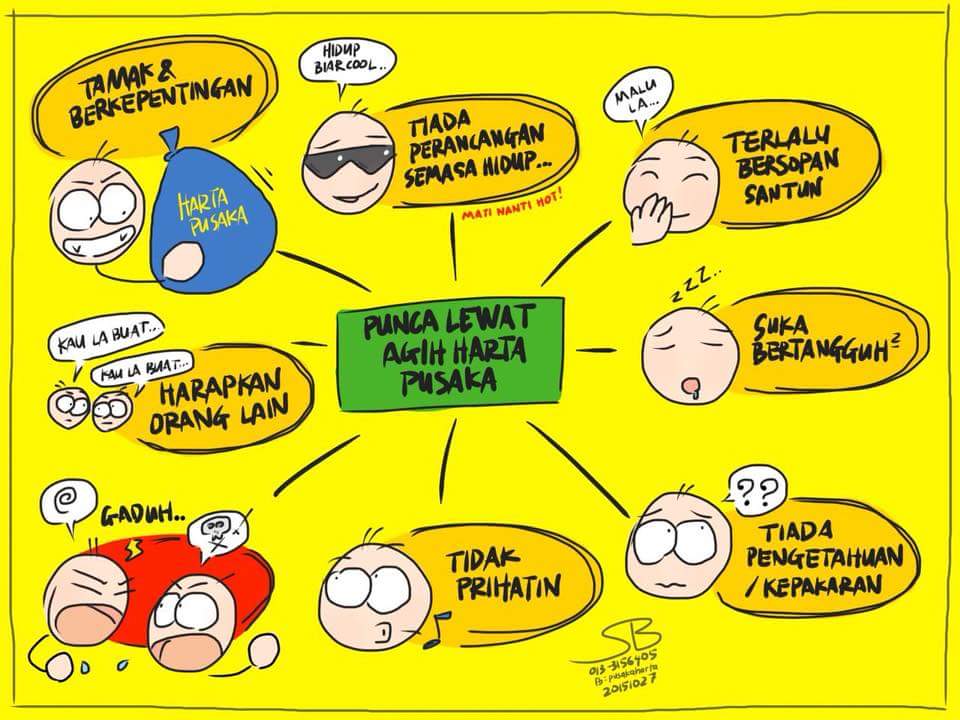 TAMAK &
BERKEPENTINGAN
HARTA
PUSAKA
HIDUP
BIAR COOL..
TIADA
PERANCANGAN
SEMASA HIDUP...
MATI NANTI HOT!
MALU
LA...
TERLALU
BERSOPAN
SANTUN
PUNCA LEWAT
AGIH HARTA
PUSAKA
zzz..
SUKA
BERTANGGUH²
KAU LA BUAT...
KAU LA BUAT...
HARAPKAN
ORANG LAIN
@
GADUH..
TIDAK
PRIHATIN
??
TIADA
PENGETAHUAN
/KEPAKARAN
SB
013-3156405
FB: pusakaharta
20151027